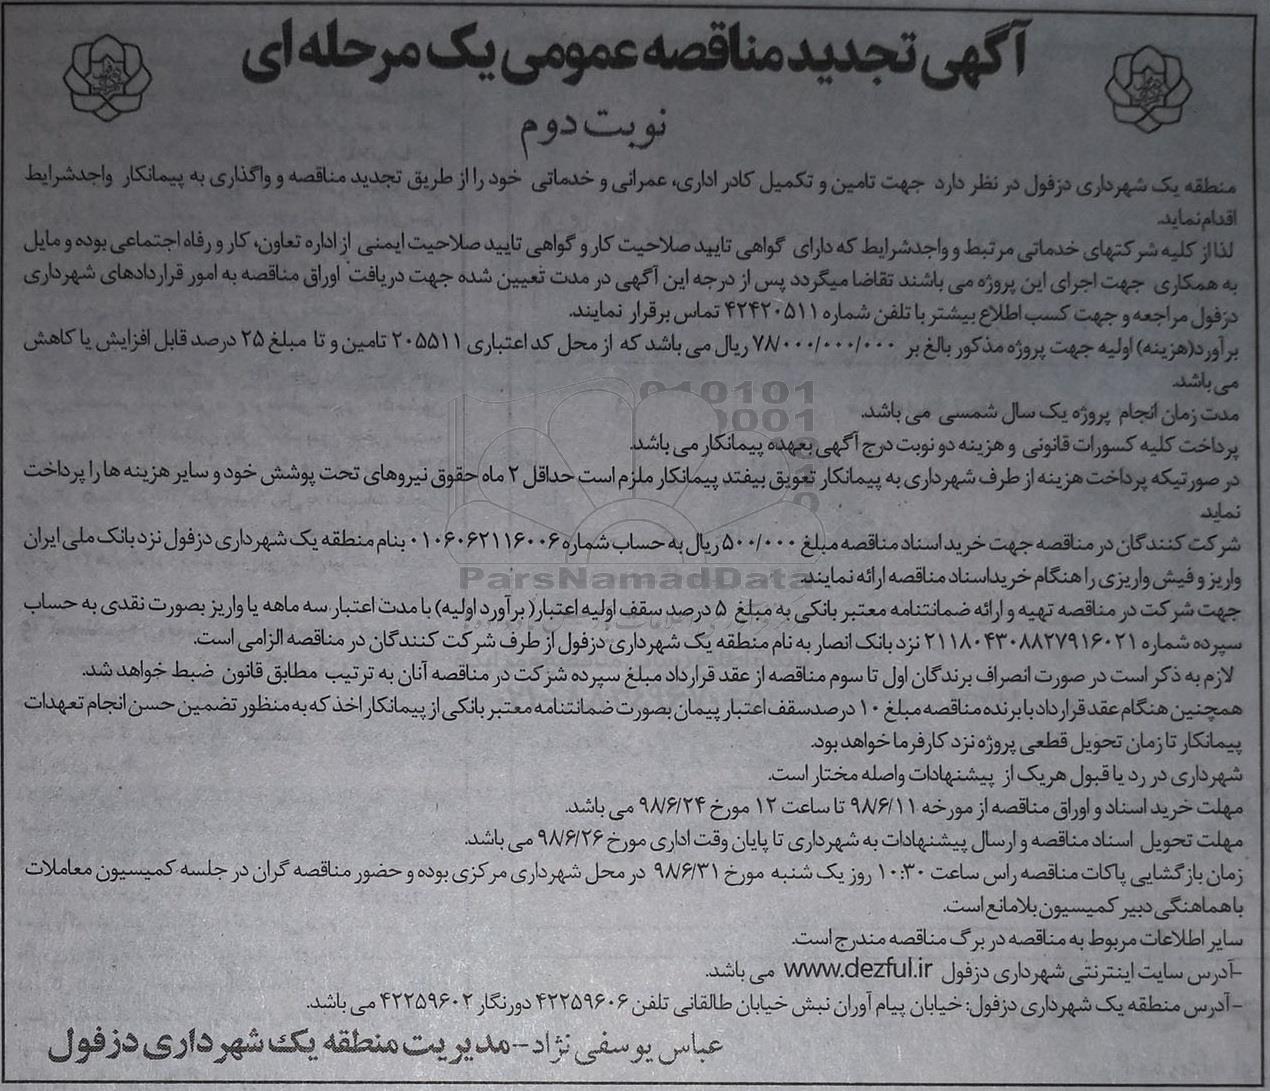 آگهی تجدید مناقصه عمومی یک مرحله ای
نوبت دوم
منطقه یک شهرداری دزفول در نظر دارد جهت تامین و تکمیل کادر اداری، عمرانی و خدماتی خود را از طریق تجدید مناقصه و واگذاری به پیمانکار واجدشرایط
اقدام نماید.
لذا از کلیه شرکتهای خدماتی مرتبط و واجدشرایط که دارای گواهی تایید صلاحیت کار و گواهی تایید صلاحیت ایمنی از اداره تعاون، کار و رفاه اجتماعی بوده و مایل
به همکاری جهت اجرای این پروژه می باشند تقاضا میگردد پس از درجه این آگهی در مدت تعیین شده جهت دریافت اوراق مناقصه به امور قراردادهای شهرداری
دزفول مراجعه و جهت کسب اطلاع بیشتر با تلفن شماره ۴۲۴۲۰۵۱۱ تماس برقرار نمایند.
برآورد(هزینه) اولیه جهت پروژه مذکور بالغ بر ۷۸/۰۰۰/۰۰۰/۰۰۰ ریال می باشد که از محل کد اعتباری ۲۰۵۵۱۱ تامین و تا مبلغ ۲۵ درصد قابل افزایش یا کاهش
می باشد.
مدت زمان انجام پروژه یک سال شمسی می باشد.
پرداخت کلیه کسورات قانونی و هزینه دو نوبت درج آگهی بعهده پیمانکار می باشد.
در صورتیکه پرداخت هزینه از طرف شهرداری به پیمانکار تعویق بیفتد پیمانکار ملزم است حداقل ۲ ماه حقوق نیروهای تحت پوشش خود و سایر هزینه ها را پرداخت
نماید.
شرکت کنندگان در مناقصه جهت خرید اسناد مناقصه مبلغ ۵۰۰/۰۰۰ ریال به حساب شماره ۰۱۰۶۰۶۲۱۱۶۰۰۶ بنام منطقه یک شهرداری دزفول نزد بانک ملی ایران
واریز و فیش واریزی را هنگام خریداسناد مناقصه ارائه نمایند.
جهت شرکت در مناقصه تهیه و ارائه ضمانتنامه معتبر بانکی به مبلغ ۵ درصد سقف اولیه اعتبار( برآورد اولیه) با مدت اعتبار سه ماهه یا واریز بصورت نقدی به حساب
سپرده شماره ۲۱۱۸۰۴۳۰۸۸۲۷۹۱۶۰۲۱ نزد بانک انصار به نام منطقه یک شهرداری دزفول از طرف شرکت کنندگان در مناقصه الزامی است.
لازم به ذکر است در صورت انصراف برندگان اول تا سوم مناقصه از عقد قرارداد مبلغ سپرده شرکت در مناقصه آنان به ترتیب مطابق قانون ضبط خواهد شد.
همچنین هنگام عقد قرارداد با برنده مناقصه مبلغ ۱۰ درصدسقف اعتبار پیمان بصورت ضمانتنامه معتبر بانکی از پیمانکار اخذ که به منظور تضمین حسن انجام تعهدات
پیمانکار تا زمان تحویل قطعی پروژه نزد کارفرما خواهد بود.
شهرداری در رد یا قبول هریک از پیشنهادات واصله مختار است.
مهلت خرید اسناد و اوراق مناقصه از مورخه ۹۸/۶/۱۱ تا ساعت ۱۲ مورخ ۹۸/۶/۲۴ می باشد.
مهلت تحویل اسناد مناقصه و ارسال پیشنهادات به شهرداری تا پایان وقت اداری مورخ ۹۸/۶/۲۶ می باشد.
زمان بازگشایی پاکات مناقصه راس ساعت ۱۰:۳۰ روز یک شنبه مورخ ۹۸/۶/۳۱ در محل شهرداری مرکزی بوده و حضور مناقصه گران در جلسه کمیسیون معاملات
با هماهنگی دبیر کمیسیون بلامانع است.
سایر اطلاعات مربوط به مناقصه در برگ مناقصه مندرج است.
-آدرس سایت اینترنتی شهرداری دزفول www.dezful.ir می باشد.
-آدرس منطقه یک شهرداری دزفول: خیابان پیام آوران نبش خیابان طالقانی تلفن ۴۲۲۵۹۶۰۶ دورنگار ۴۲۲۵۹۶۰۲ می باشد.
عباس یوسفی نژاد - مدیریت منطقه یک شهرداری دزفول
ParsNamadData